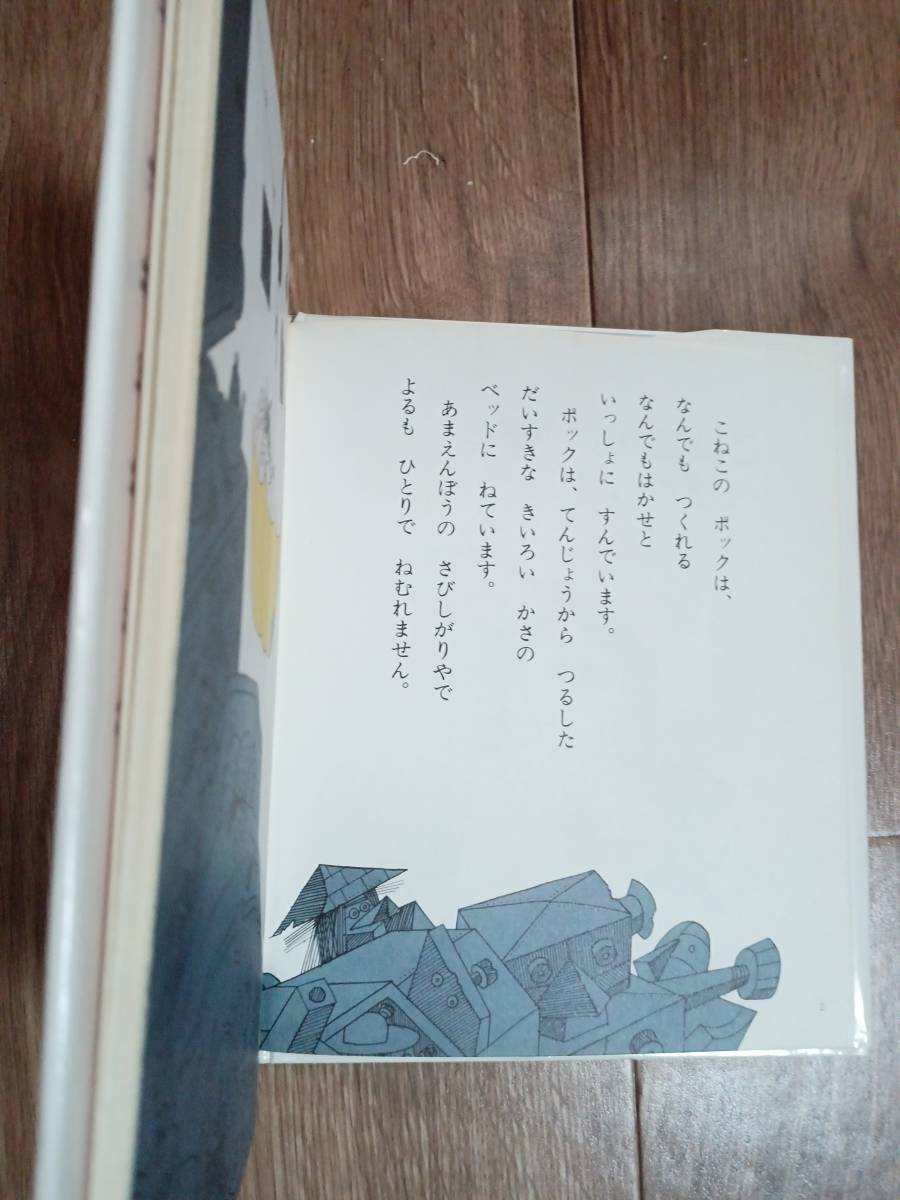 こねこの　ポックは、
なんでも　つくれる
なんでもはかせと
いっしょに　すんでいます。
ポックは、てんじょうから　つるした
だいすきな　きいろい　かさの
ベッドに　ねています。
あまえんぼうの　さびしがりやで
よるも　ひとりで　ねむれません。
2